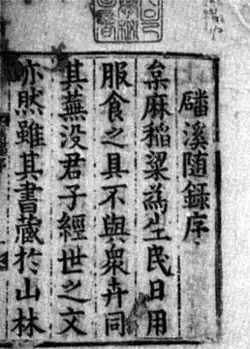 磻溪隨錄序
枲麻稻粱為生民日用
服食之具不與眾卉同
其蕪没君子經世之文
亦然雖其書藏於山林